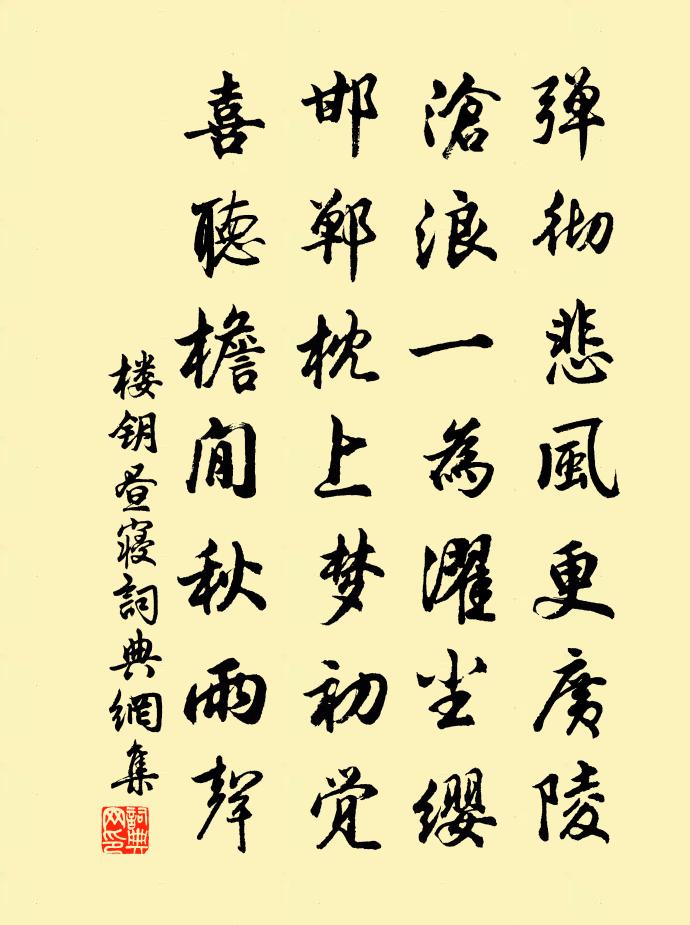 弹彻悲風更廣陵
滄浪一為濯尘缨
邯郸枕上梦初觉
喜聽檐间秋雨聲
楼钥昼寝詞典網集
詞典网印